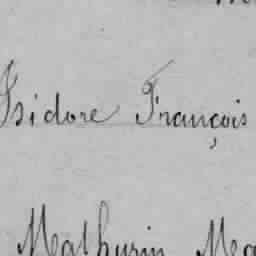 Isidore François
Mathurin Ma